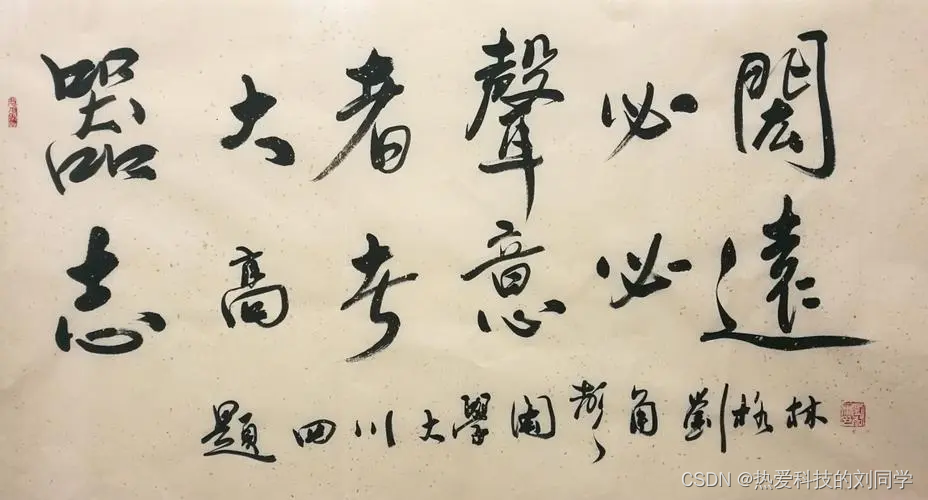 器大者聲必閎
志高者意必遠
題四川大學圖書角劉格林
CSDN @热爱科技的刘同学